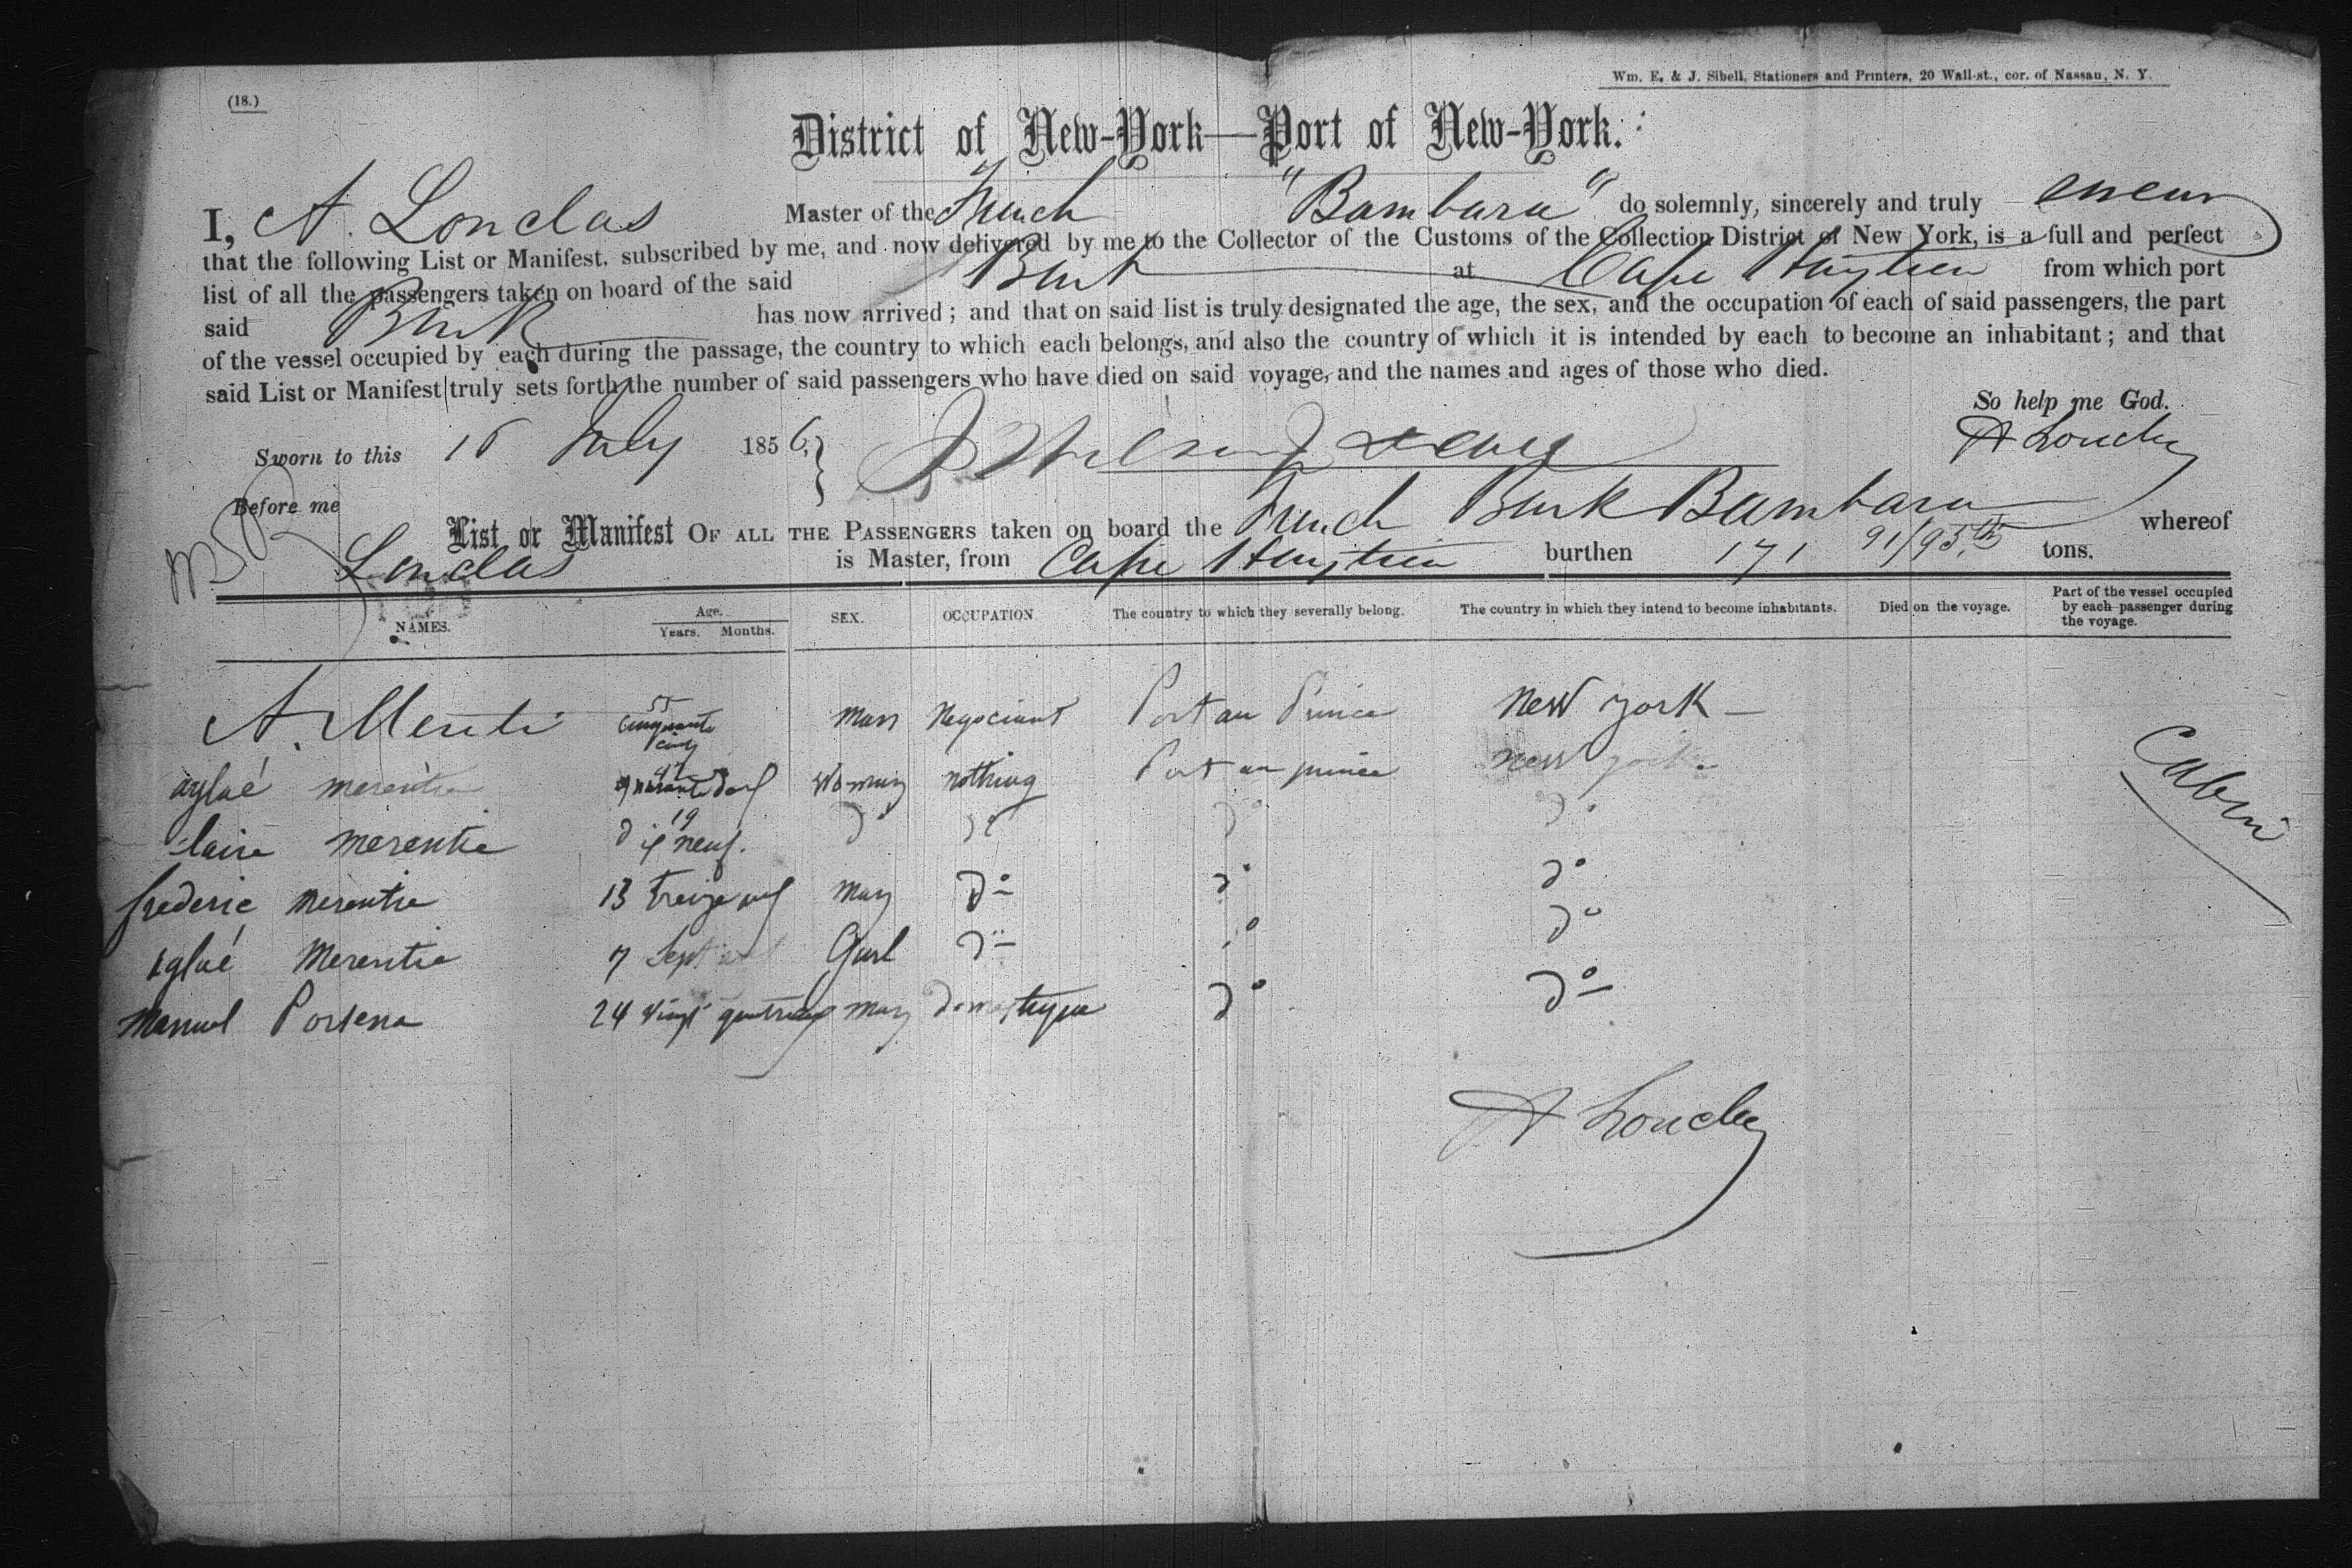 Wm. E. & J. Sibell, Stationers and Printers, 20 Wall-st., cor. of Nassau, N. Y.
(18.)
District of New-York—Port of New-York.
I, A. Londas Master of the French "Bambara" do solemnly, sincerely and truly
that the following List or Manifest, subscribed by me, and now delivered by me to the Collector of the Customs of the Collection District of New York, is a full and perfect
list of all the passengers taken on board of the said Bark at Cape Haytien from which port
said Bark has now arrived; and that on said list is truly designated the age, the sex, and the occupation of each of said passengers, the part
of the vessel occupied by each during the passage, the country to which each belongs, and also the country of which it is intended by each to become an inhabitant; and that
said List or Manifest truly sets forth the number of said passengers who have died on said voyage, and the names and ages of those who died.
So help me God.
Sworn to this 16 July 1856,
Before me
List or Manifest OF ALL THE PASSENGERS taken on board the French Bark Bambara whereof
Londas is Master, from Cape Haytien burthen 171 91/95th tons.
NAMES. Age. Years. Months. SEX. OCCUPATION The country to which they severally belong. The country in which they intend to become inhabitants. Died on the voyage. Part of the vessel occupied by each passenger during the voyage.
A. Menti 55 cinquante cinq man Negociant Port au Prince New York —
aglaé merentie quarante nothing Port au prince new york
Claire merentie 19 dix neuf. do do do do
frederic merentie 13 treize man do do do
aglaé Merentie 7 Sept Gurl do do do
manuel Portena 24 vingt man do do
Cabin